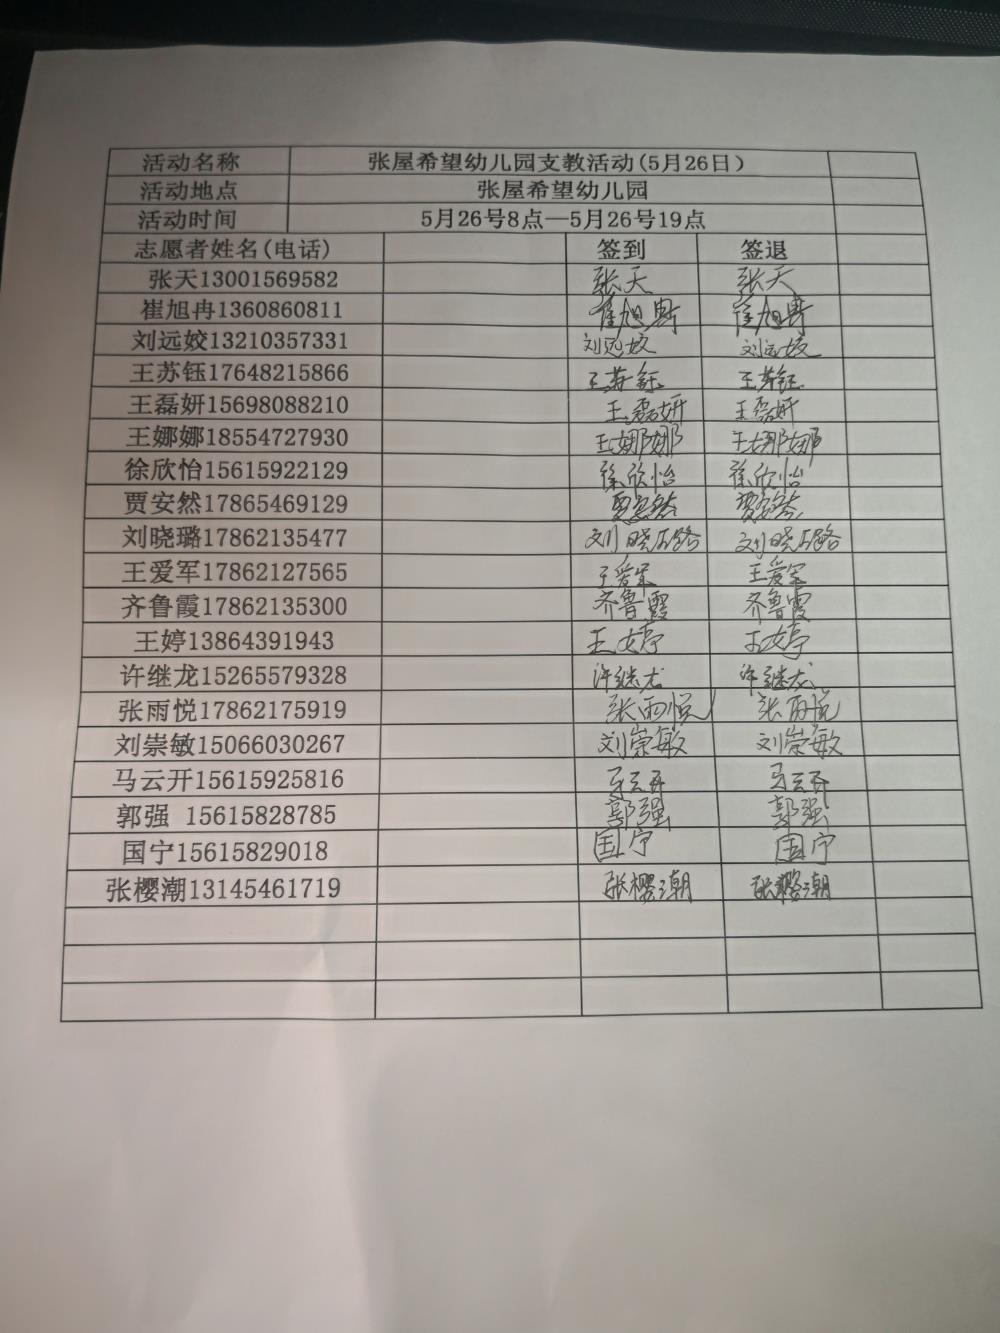 活动名称 张屋希望幼儿园支教活动(5月26日)
活动地点 张屋希望幼儿园
活动时间 5月26号8点—5月26号19点
志愿者姓名(电话) 签到 签退
张天13001569582 张天 张天
崔旭冉1360860811 崔旭冉 崔旭冉
刘远姣13210357331 刘远姣 刘远姣
王苏钰17648215866 王苏钰 王苏钰
王磊妍15698088210 王磊妍 王磊妍
王娜娜18554727930 王娜娜 王娜娜
徐欣怡15615922129 徐欣怡 徐欣怡
贾安然17865469129 贾安然 贾安然
刘晓璐17862135477 刘晓璐 刘晓璐
王爱军17862127565 王爱军 王爱军
齐鲁霞17862135300 齐鲁霞 齐鲁霞
王婷13864391943 王婷 王婷
许继龙15265579328 许继龙 许继龙
张雨悦17862175919 张雨悦 张雨悦
刘崇敏15066030267 刘崇敏 刘崇敏
马云开15615925816 马云开 马云开
郭强 15615828785 郭强 郭强
国宁15615829018 国宁 国宁
张樱潮13145461719 张樱潮 张樱潮